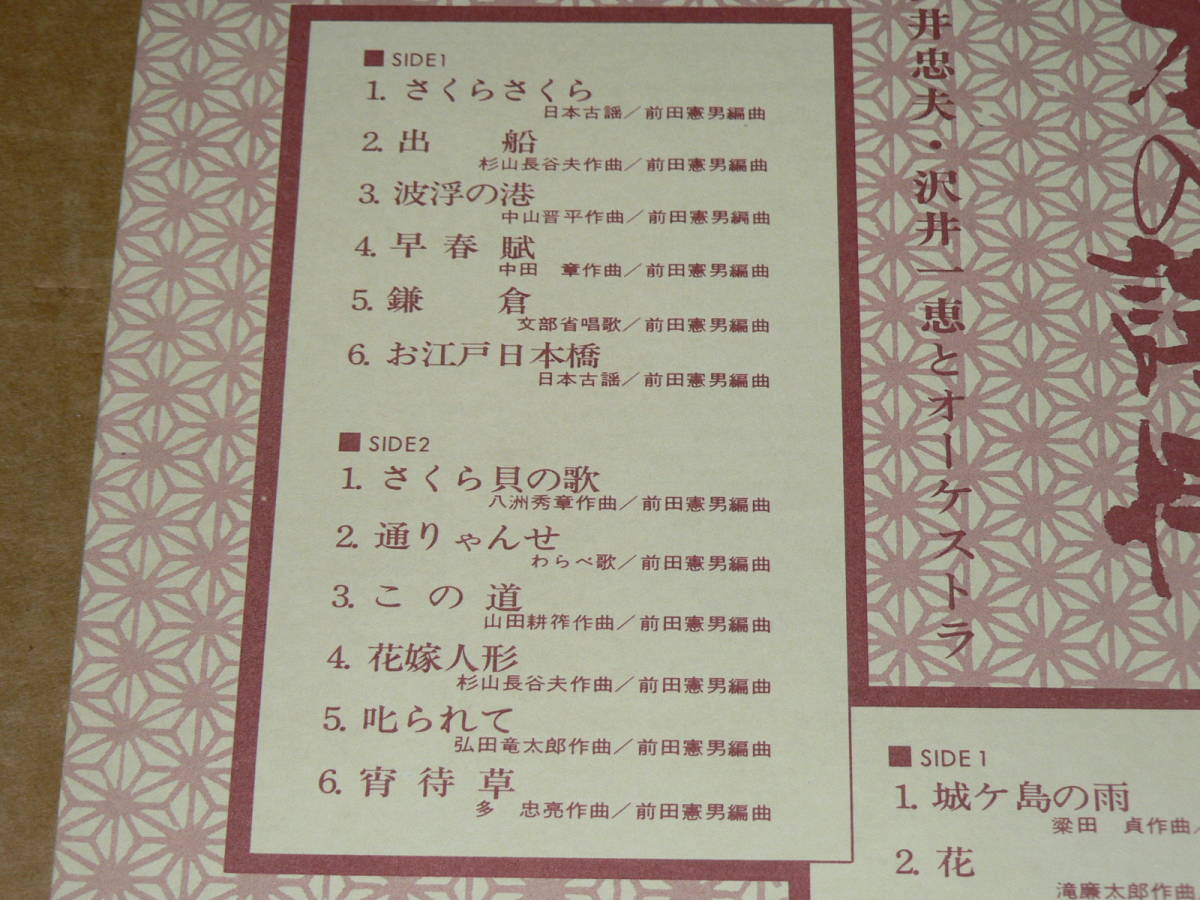 ■ SIDE1
1. さくらさくら
日本古謡／前田憲男編曲
2. 出　船
杉山長谷夫作曲／前田憲男編曲
3. 波浮の港
中山晋平作曲／前田憲男編曲
4. 早春賦
中田　章作曲／前田憲男編曲
5. 鎌　倉
文部省唱歌／前田憲男編曲
6. お江戸日本橋
日本古謡／前田憲男編曲
■ SIDE2
1. さくら貝の歌
八洲秀章作曲／前田憲男編曲
2. 通りゃんせ
わらべ歌／前田憲男編曲
3. この道
山田耕筰作曲／前田憲男編曲
4. 花嫁人形
杉山長谷夫作曲／前田憲男編曲
5. 叱られて
弘田竜太郎作曲／前田憲男編曲
6. 宵待草
多　忠亮作曲／前田憲男編曲
井忠夫・沢井一恵とオーケストラ
の詩
■ SIDE1
1. 城ケ島の雨
梁田　貞作曲／
2. 花
滝廉太郎作曲